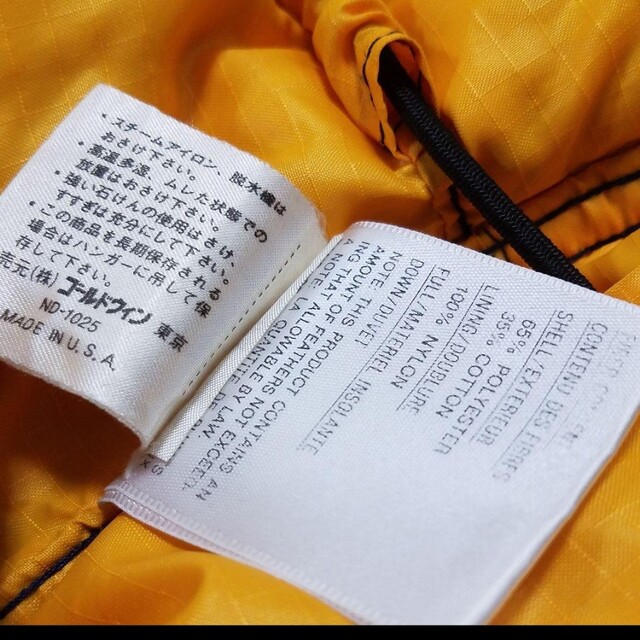 ・スチームアイロン、脱水機は
おさけ下さい。
・高温多湿、ムレた状態での
放置はおさけ下さい。
・強い石けんの使用はさけ、
すすぎは充分にして下さい。
・この商品を長期保存される
場合はハンガーに吊して保
存して下さい。
売元(株) ゴールドウイン 東京
ND-1025
MADE IN U.S.A.
CONTENU DES FIBRES
SHELL/EXTERIEUR
65% POLYESTER
35% COTTON
LINING/DOUBLURE
100% NYLON
FULL MATERIEL INSOLANTE
DOWN/DUVET
NOTE: THIS PRODUCT CONTAINS AN
AMOUNT OF FEATHERS NOT EXCEED-
ING THAT ALLOWABLE BY LAW.